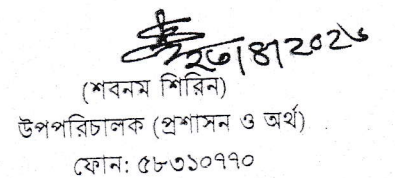 ২৩/৪/২০২৬
(শবনম শিরিন)
উপপরিচালক (প্রশাসন ও অর্থ)
ফোন: ৫৮৩১০৭৭০